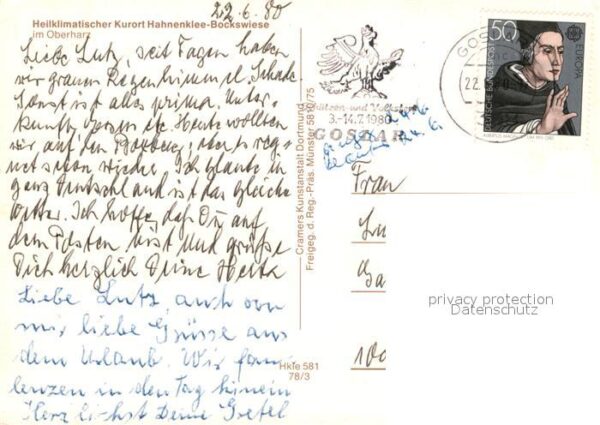 22.6.80
Heilklimatischer Kurort Hahnenklee-Bockswiese
im Oberharz
Liebe Lutz, seit Tagen haben
wir grauen Regenhimmel. Schade
Sonst ist alles prima. Unter-
kunft, etc. Heute wollten
wir auf den aber es reg-
net schon wieder. Ich glaube in
ganz Deutschland ist das gleiche
Wetter. Ich hoffe, daß Du auf
dem Posten bist und grüße
Dich herzlich Deine Herta
Liebe Lutz, auch von
mir liebe Grüsse aus
dem Urlaub. Wir faul
lenzen in den Tag hinein
Herzlichst Deine Gretel
Cramers Kunstanstalt Dortmund
Freigeg. d. Reg.-Präs. Münster 5810/75
Hkle 581
78/3
Schützen- und Volksfest
3.-14.7.1980
GOSLAR
GOS
22.
50
DEUTSCHE BUNDESPOST
EUROPA
CEPT
ALBERTUS MAGNUS
Frau
Lu
Ga
100
privacy protection
Datenschutz